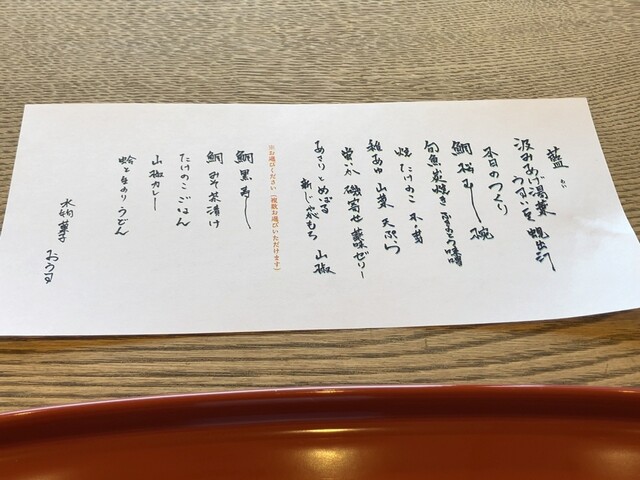 藍
汲みあげ湯葉
うすい豆 蜆出汁
本日のつくり
鯛桜むし 碗
旬魚炭焼き ふきのとう味噌
焼たけのこ 木ノ芽
稚あゆ 山菜 天ぷら
蛍いか 磯寄せ 黄味ゼリー
あさりとめぶる
新じゃがもち 山椒
※お選びください(複数お選びいただけます)
鯛黒寿し
鯛みそ茶漬け
たけのこごはん
山椒カレー
蛤と生のりうどん
水物 菓子 おうす